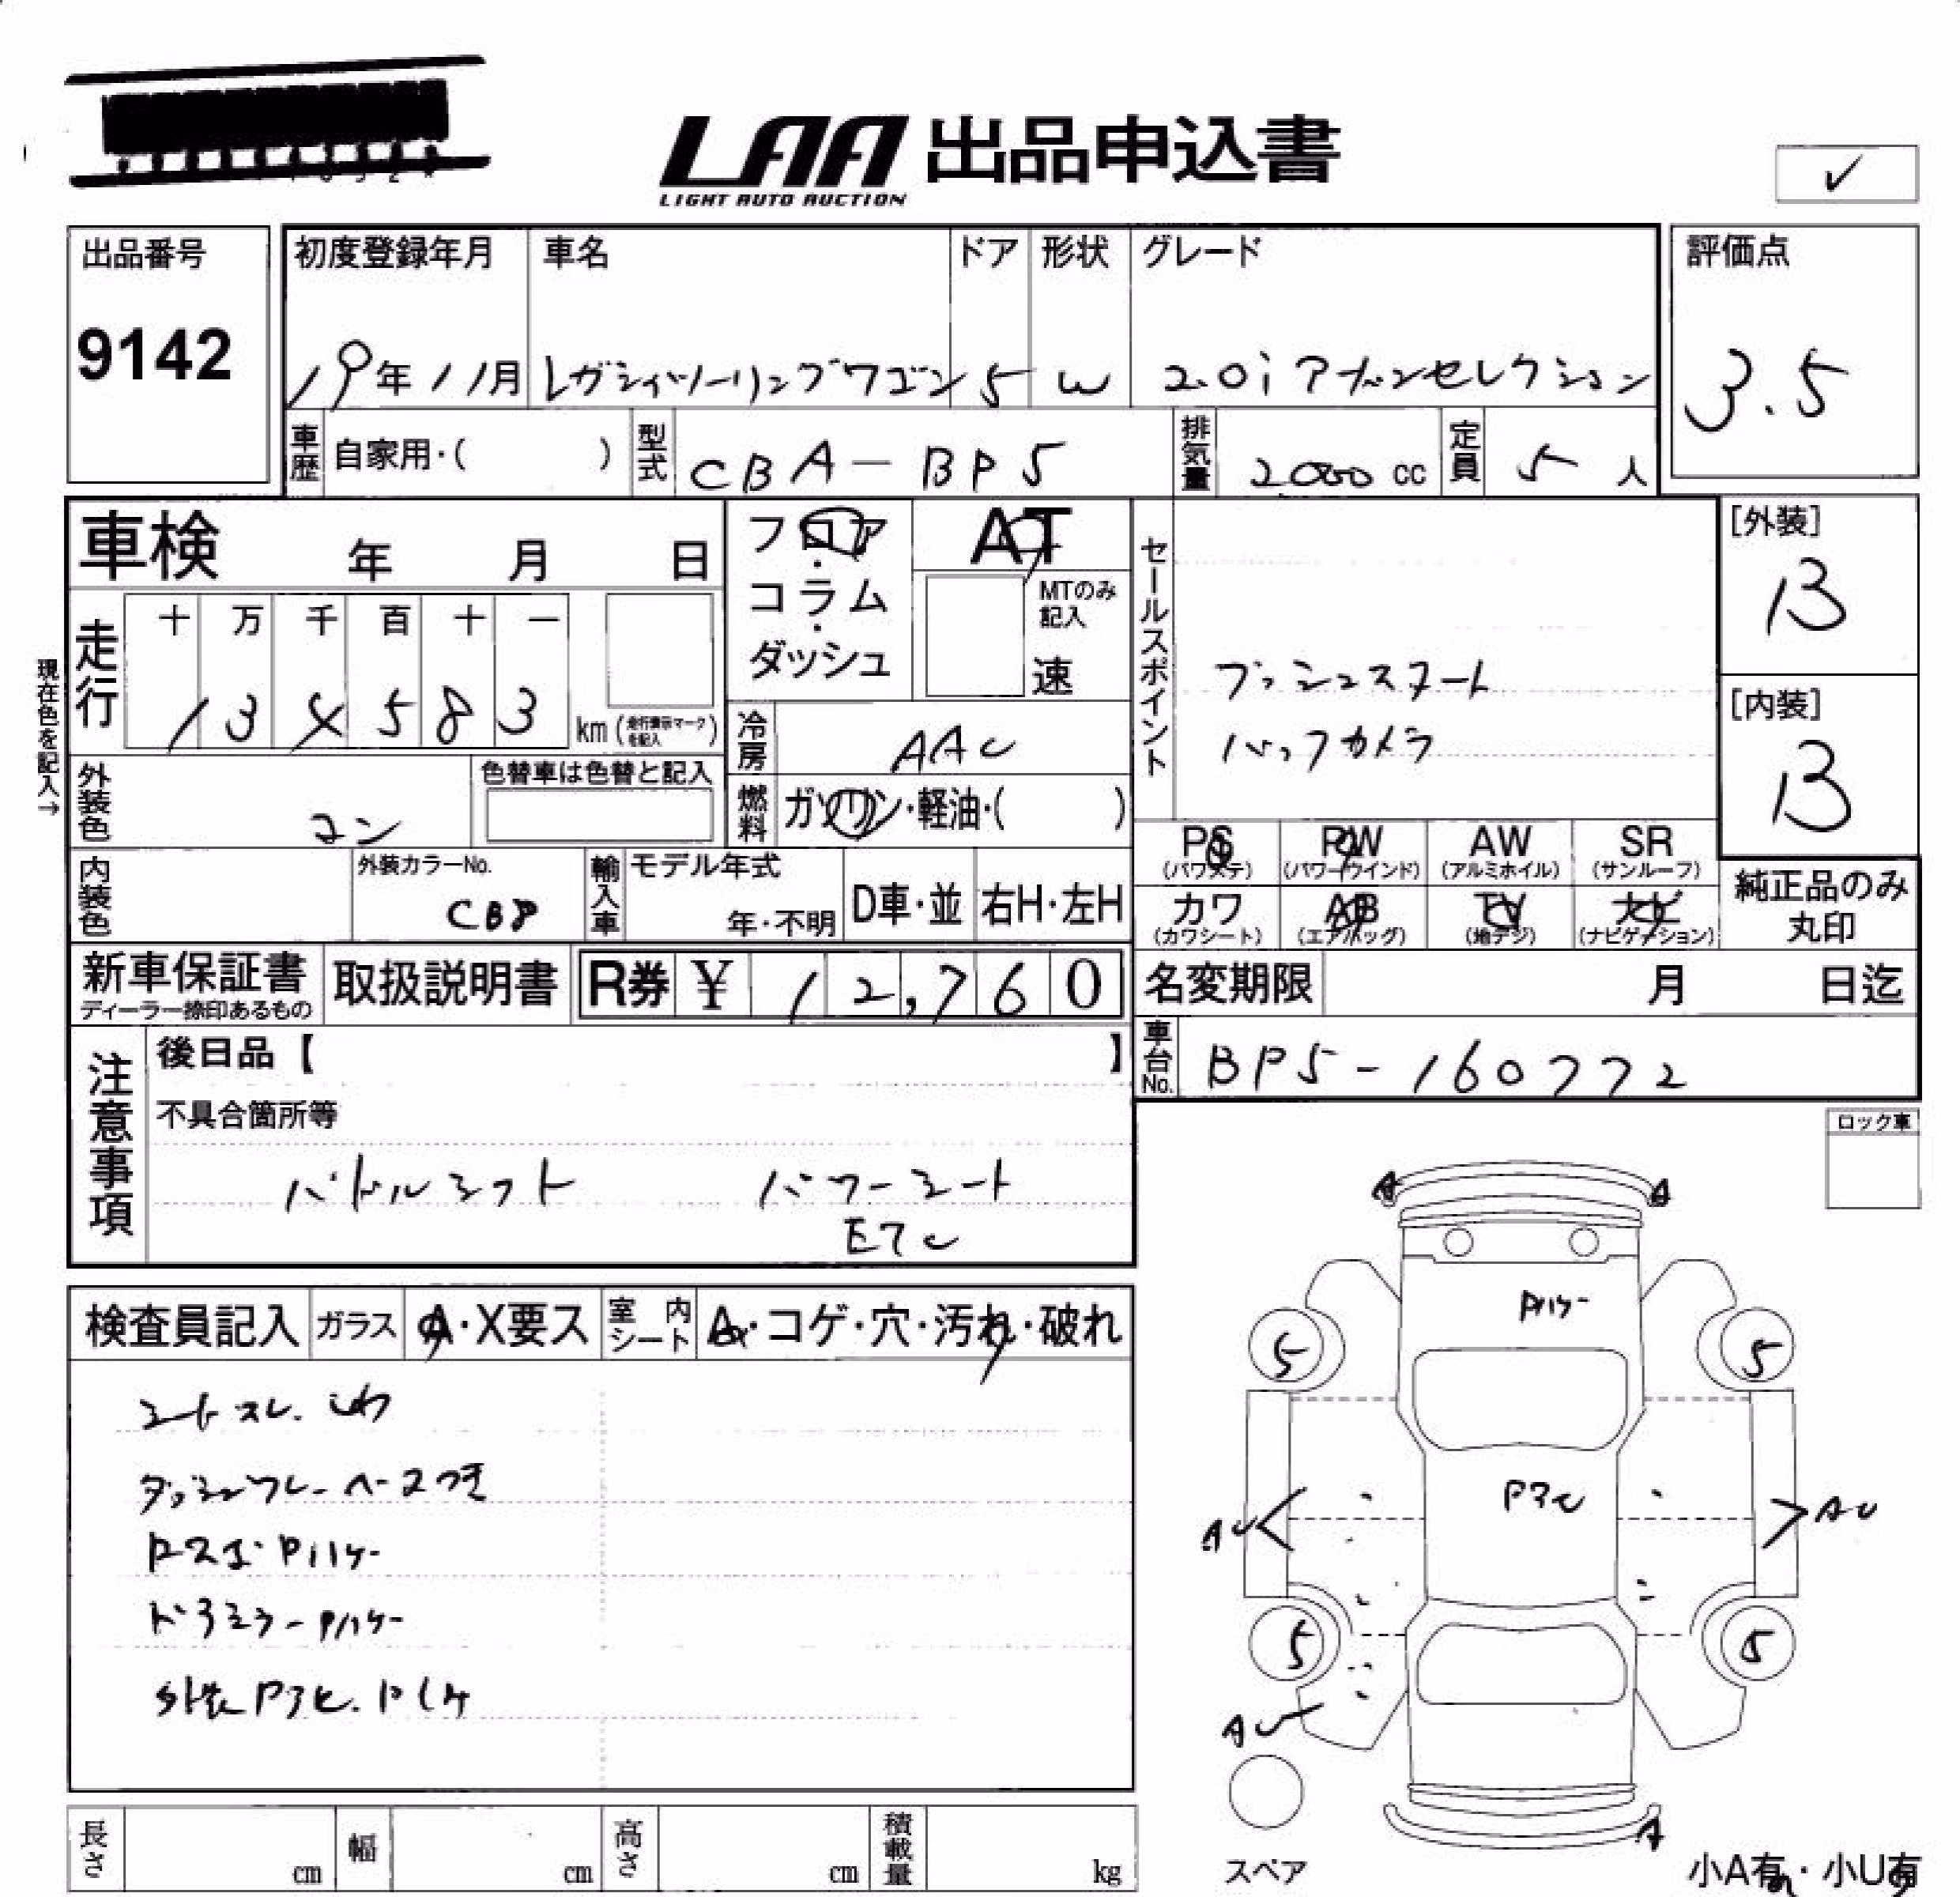 LAA 出品申込書
LIGHT AUTO AUCTION
✓
出品番号
9142
初度登録年月
19年11月
車名
レガシィツーリングワゴン
ドア
5
形状
W
グレード
2.0i アーバンセレクション
評価点
3.5
車歴
自家用・( )
型式
CBA-BP5
排気量
2000 cc
定員
5 人
車検 年 月 日
フロア・コラム・ダッシュ
AT
MTのみ記入
速
セールスポイント
プッシュスタート
バックカメラ
[外装]
B
[内装]
B
現在色を記入→
走行
十 万 千 百 十 一
583
km (走行表示マークを記入)
冷房
AAC
外装色
コン
色替車は色替と記入
燃料
ガソリン・軽油・( )
PS (パワステ)
PW (パワーウインド)
AW (アルミホイル)
SR (サンルーフ)
カワ (カワシート)
AB (エアバッグ)
TV (地デジ)
ナビ (ナビゲーション)
純正品のみ丸印
内装色
外装カラーNo.
輸入車
モデル年式
年・不明
D車・並
右H・左H
新車保証書
ディーラー捺印あるもの
取扱説明書
R券 ¥ 12,760
名変期限 月 日迄
車台No.
BP5-160772
注意事項
後日品【 】
不具合箇所等
パドルシフト パワーシート
ETC
ロック車
検査員記入
ガラス
A・X要ス
室内シート
A・コゲ・穴・汚れ・破れ
シートスレ.しわ
A A
Pハケ
5 5
P3C
AU AU
5 5
AU
A
スペア
小A有・小U有
長さ cm
幅 cm
高さ cm
積載量 kg